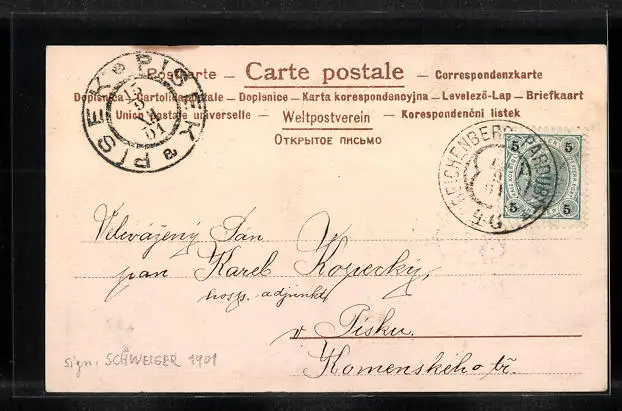 Postkarte — Carte postale — Correspondenzkarte
Dopisnica — Cartolina postale — Dopisnice — Karta korespondencyjna — Levelező-Lap — Briefkaart
Union postale universelle — Weltpostverein — Korespondenční listek
ОТКРЫТОЕ ПИСЬМО
PISEK PISEK
01
REICHENBERG PARDUBITZ
4G
5 5
5 5
Velevážený Pan
pan Karel Kopecký,
hosp. adjunkt
v Písku.
Komenského tř.
sign. SCHWEIGER 1901